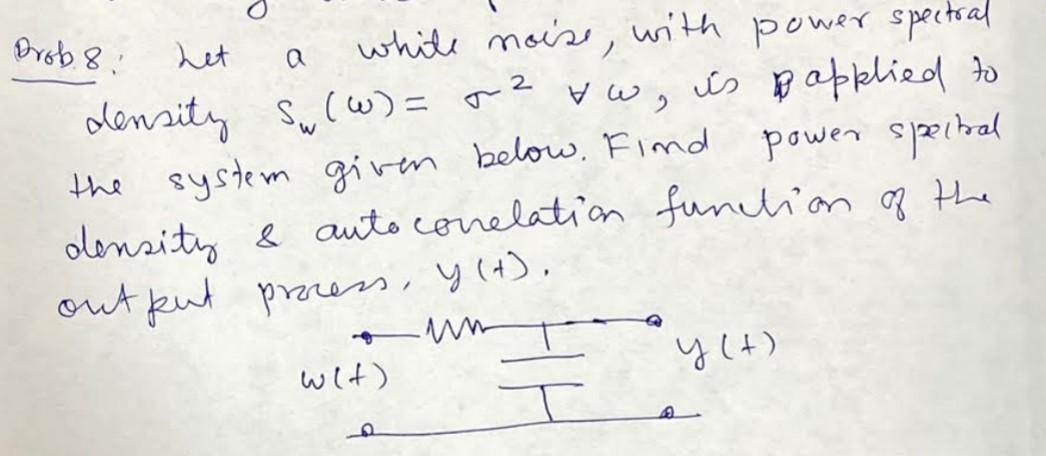 Prob 8: Let a white noise, with power spectral
density S_w(ω) = σ² ∀ ω, is applied to
the system given below. Find power spectral
density & autocorrelation function of the
output process, y(t).
w(t)
y(t)